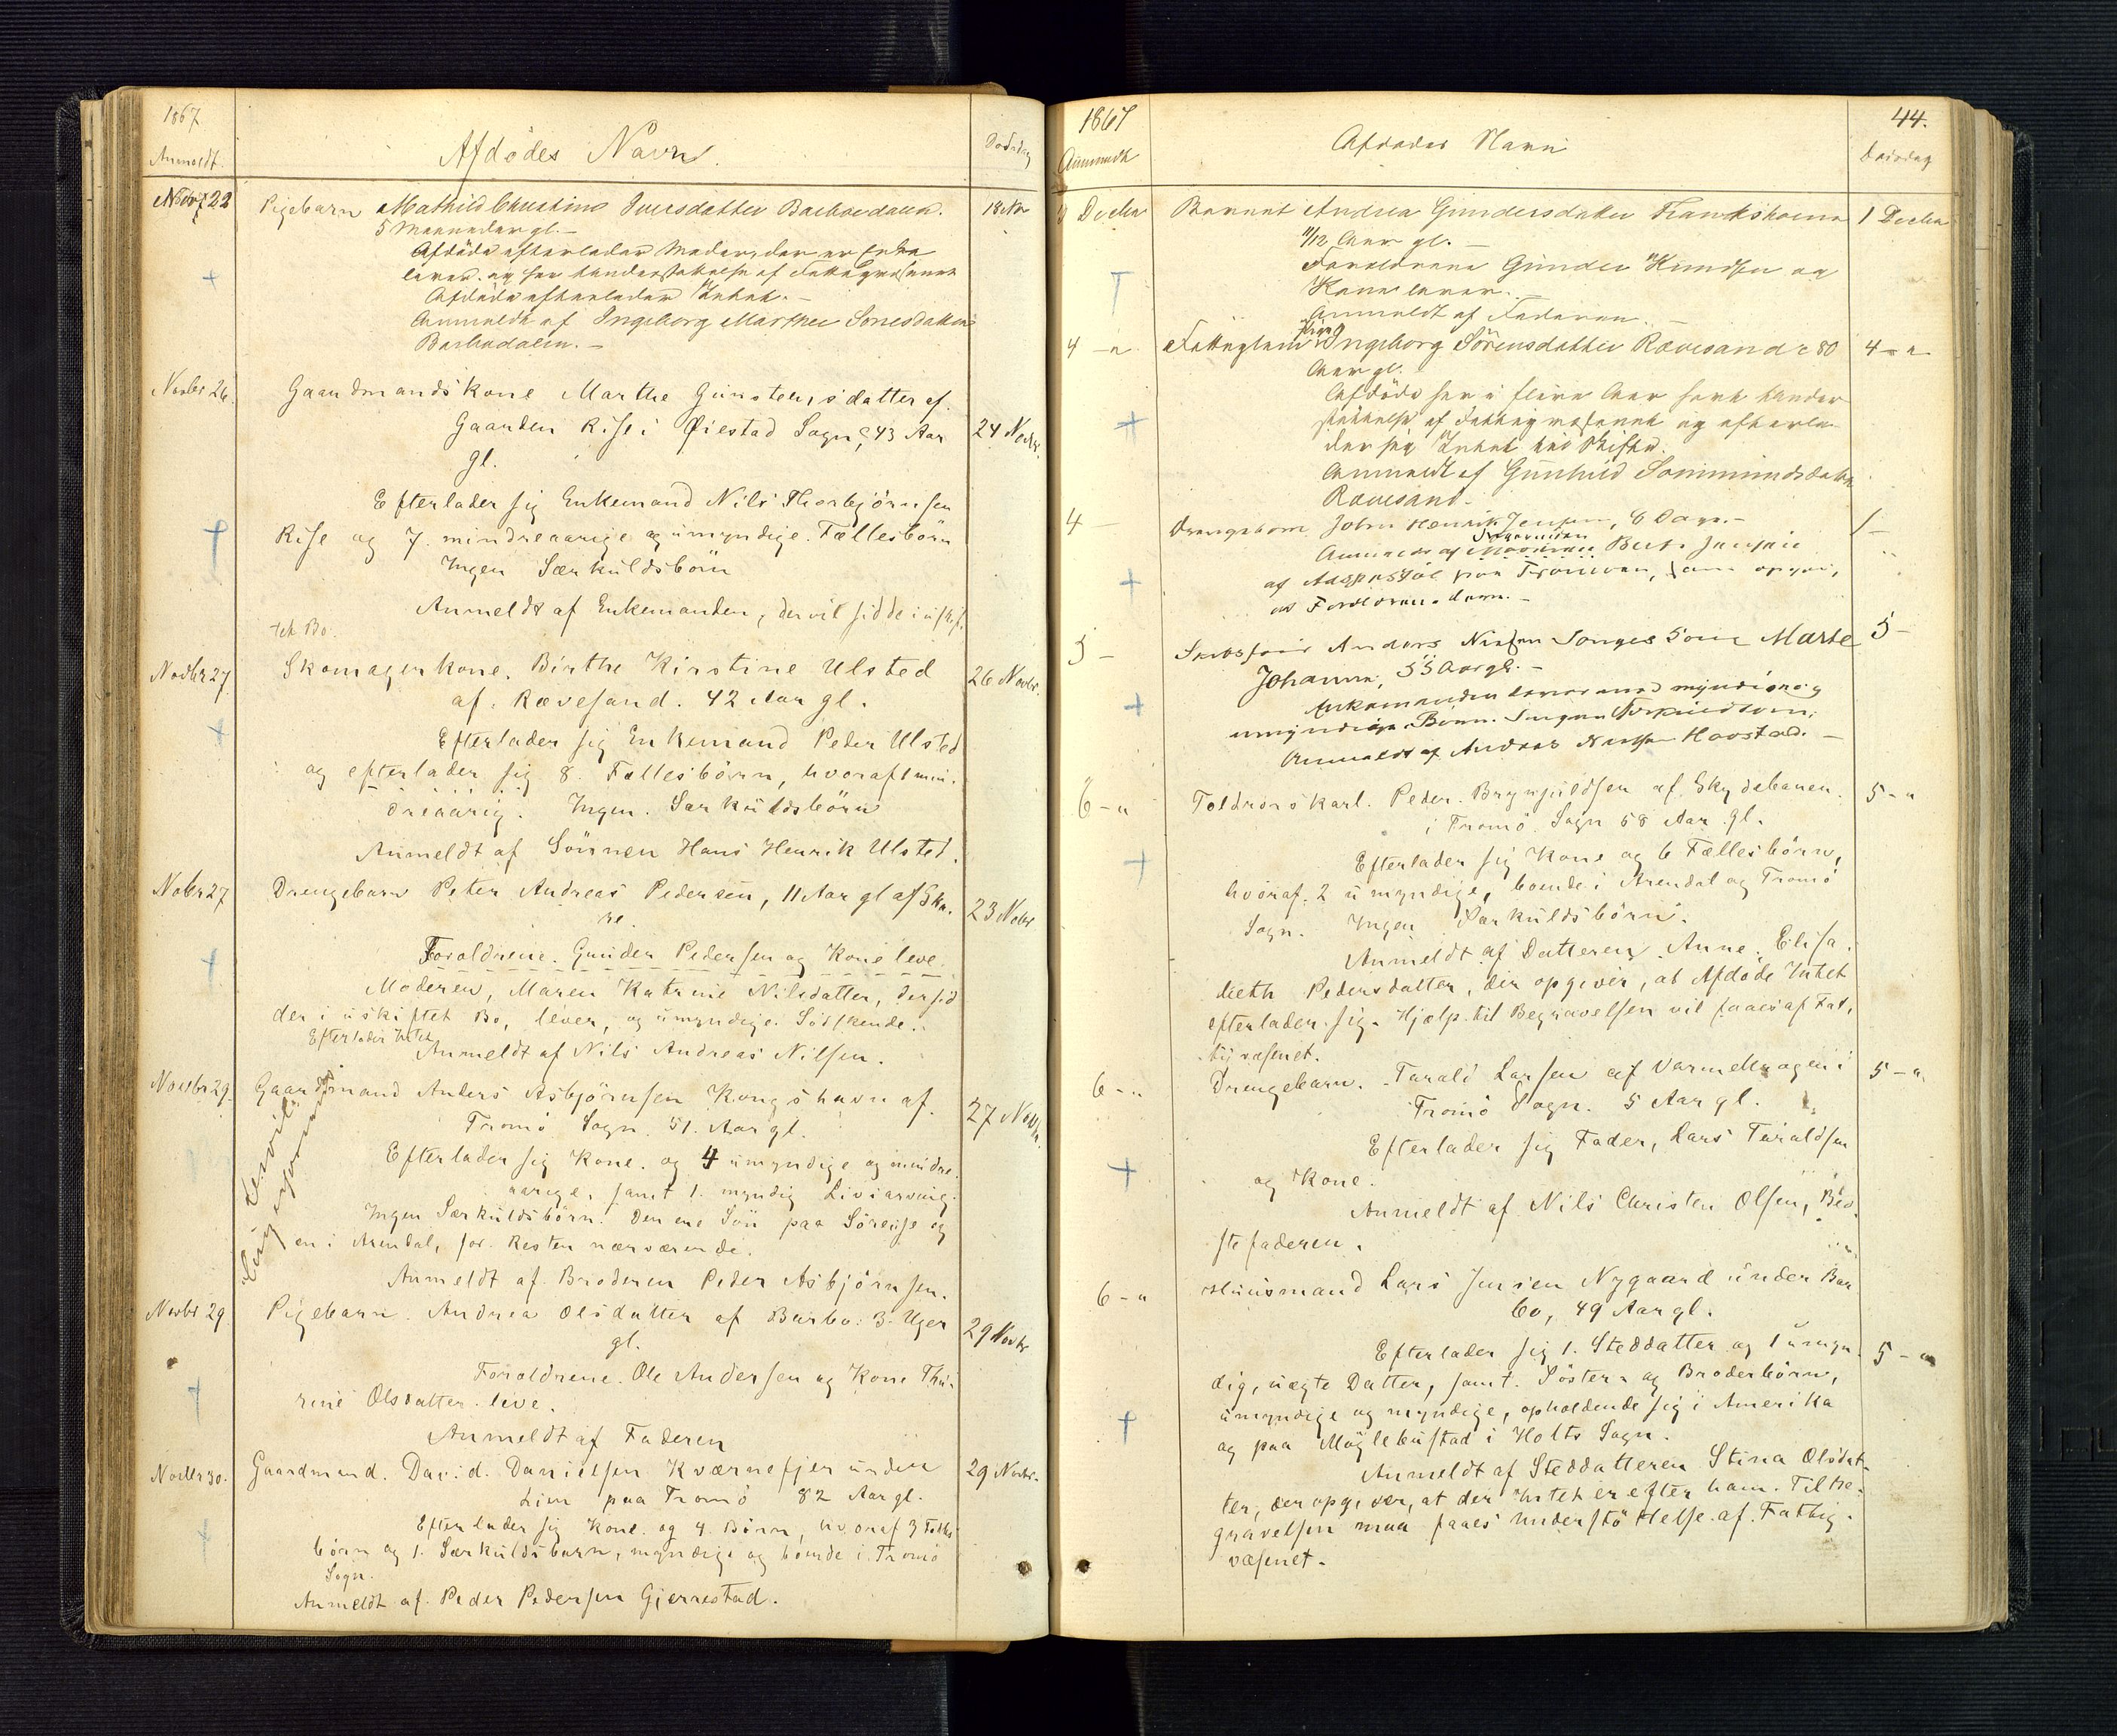 1867
Anmeldt.
Afdödes Navn.
Dödsdag
Novbr 22
Pigebarn Mathild Christine Iversdatter Barbodalen.
18 Nov
5 Maaneder gl. —
Afdöde efterlader Moder, der er Enke
lever og har understøttelse af Fattigvæsenet
Afdöde efterlader Intet. —
Anmeldt af Ingeborg Marthe Jonesdatter
Barbodalen. —
Novbr 26.
Gaardmandskone Marthe Gunstensdatter af
Gaarden Rise i Øiestad Sogn, 43 Aar
24 Novbr.
gl.
Efterlader sig Enkemand Nils Thorbjörnsen
Rise og 7 mindreaarige og umyndige Fællesbörn
Ingen Særkuldsbörn
Anmeldt af Enkemanden, der vil sidde i uskif-
tet Bo.
Novbr 27
Skomagerkone Birthe Kirstine Ulsted
26 Novbr.
af Rævesand. 42 Aar gl.
Efterlader sig Enkemand Peder Ulsted
og efterlader sig 8 Fællesbörn, hvoraf 1 min-
dreaarig. Ingen Særkuldsbörn
Anmeldt af Sönnen Hans Henrik Ulsted.
Novbr 27
Drengebarn Peter Andreas Pedersen, 11 Aar gl af Ska-
re.
23 Novbr
Foraldrene Gunder Pedersen og Kone leve.
Moderen, Maren Katrine Nilsdatter, der sid
der i uskiftet Bo, lever, og umyndige Södskende.
Efterlader Intet
Anmeldt af Nils Andreas Nilsen.
Novbr 29.
Gaardmand Anders Asbjörnsen Kongshavn af
27 Novbr.
Tromö Sogn 51 Aar gl.
Efterlader sig Kone og 4 umyndige og mindre-
aarige, samt 1 myndig Livsarving.
Ingen Særkuldsbörn. Den ene Sön paa Söreise og
en i Arendal, for Resten nærværende.
Anmeldt af Broderen Peder Asbjörnsen.
Novbr 29
Pigebarn Andrea Olsdatter af Barbo: 3 Uger
29 Novbr
gl.
Foraldrene Ole Andersen og Kone Thu-
rine Olsdatter leve.
Anmeldt af Faderen
Novbr 30.
Gaardmand David Danielsen Kværnefjer under
29 Novbr.
Lien paa Tromö 82 Aar gl.
Efterlader sig Kone og 4 Börn, hvoraf 3 Fælles
börn og 1 Særkuldsbarn, myndige og boende i Tromö
Sogn.
Anmeldt af Peder Pedersen Gjerrestad.
1867
Anmeldt
Afdödes Navn
44.
Dödsdag
3 Decbr
Barnet Andrea Gundersdatter Frankshavn
1 Decbr
11/12 Aar gl. —
Foreldrene Gunder Knudsen og
Kone lever. —
Anmeldt af Faderen. —
4 — "
Fattiglem Ingeborg Sörensdatter Rævesand c 80
4 — "
Aar gl.
Afdöde har i flere Aar havt under
støttelse af Fattigvæsenet og efterla-
der sig Intet til Skifte.
Anmeldt af Gunhild Sommundsdatter
Rævesand. —
4 —
Drengebarn John Henrik Jensen, 8 Dage. —
1 —
Anmeldt af Berte Jensen
af paa Tromöen, som opgiver,
at Foreldrene leve. —
5 —
Anders Nielsen Songes Kone Marte
5 —
Johanne, 55 Aar gl. —
Enkemanden lever med myndige og
umyndige Börn. Ingen
Anmeldt af Andreas Nielsen Havstad. —
6 — "
Toldrorskarl Peder Brynjuldsen af Skydebanen
5 — "
i Tromö Sogn 68 Aar gl.
Efterlader sig Kone og 6 Fællesbörn,
hvoraf 2 umyndige, boende i Arendal og Tromö
Sogn. Ingen Særkuldsbörn.
Anmeldt af Datteren Anne Elisa-
beth Pedersdatter, der opgiver, at Afdöde Intet
efterlader sig. Hjælp til Begravelsen vil faaes af Fat-
tigvæsenet.
6 — "
Drengebarn Tarald Larsen af Varmekrogen i
5 — "
Tromö Sogn. 5 Aar gl.
Efterlader sig Fader, Lars Taraldsen
og Kone.
Anmeldt af Nils Christen Olsen, Bed-
stefaderen.
6 — "
Huusmand Lars Jensen Nygaard under Bar
bo, 49 Aar gl.
Efterlader sig 1 Steddatter og 1 umyn-
5 — "
dig, uægte Datter, samt Söster- og Broderbörn,
umyndige og myndige, opholdende sig i Amerika
og paa Möglebustad i Holts Sogn.
Anmeldt af Steddatteren Stina Olsdat-
ter, der opgiver, at der Intet er efter ham. Til Be-
gravelsen maa faaes Understöttelse af Fattig-
væsenet.